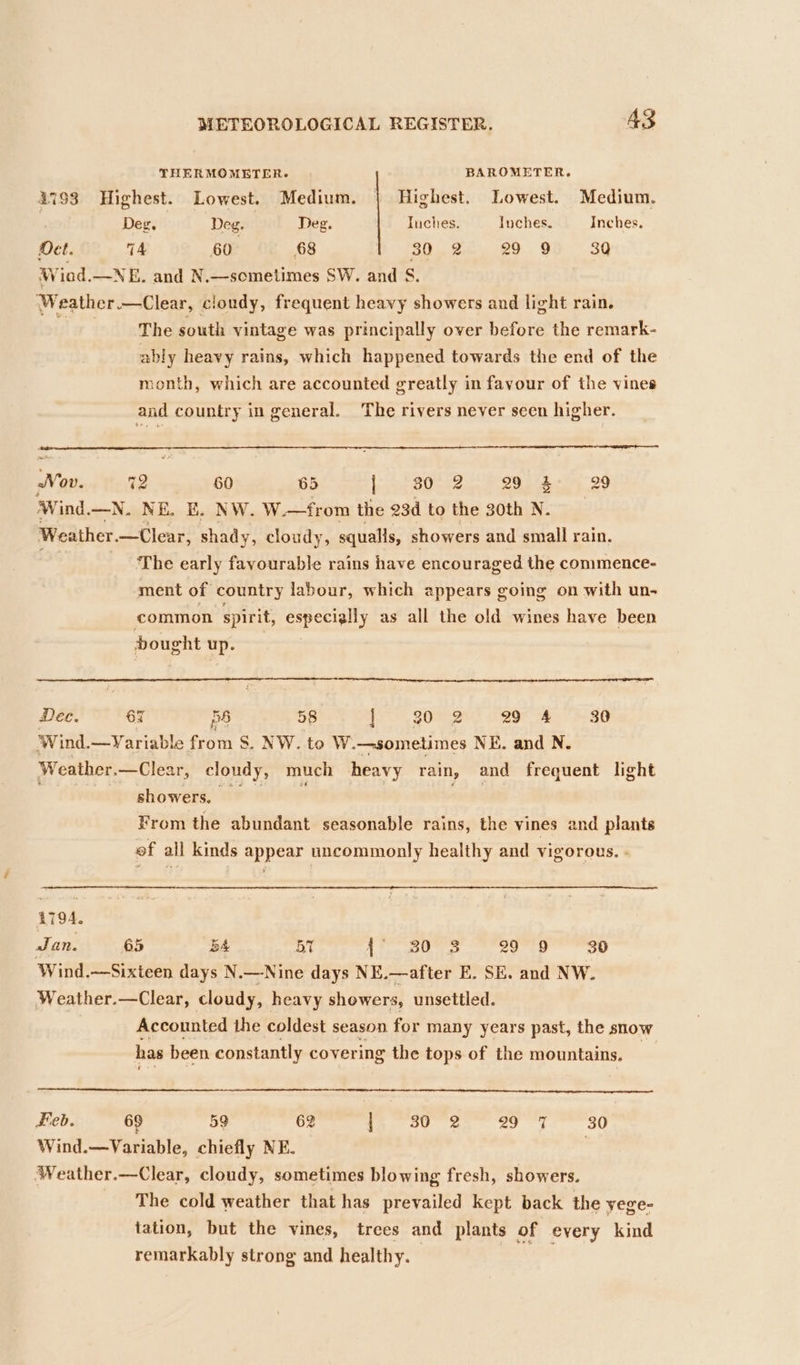 METEOROLOGICAL REGISTER. 43
THERMOMETER. BAROMETER.
1793 Highest. Lowest. Medium. Highest. Lowest. Medium.
Deg. Deg. Deg. Inches. Inches. Inches.
Oct. 74 60 68 30 2 29 9 30
Wind.—NE. and N.—sometimes SW. and S.
Weather.—Clear, cloudy, frequent heavy showers and light rain.
The south vintage was principally over before the remark-
ably heavy rains, which happened towards the end of the
month, which are accounted greatly in favour of the vines
and country in general. The rivers never seen higher.
Nov. 72 60 65 30 2 29 4 29
Wind.—N. NE. E. NW. W.—from the 23d to the 30th N.
Weather.—Clear, shady, cloudy, squalls, showers and small rain.
The early favourable rains have encouraged the commence-
ment of country labour, which appears going on with un-
common spirit, especially as all the old wines have been
bought up.
Dec. 67 58 30 2 29 4 30
Wind.—Variable from S. NW. to W.—sometimes NE. and N.
Weather.—Clear, cloudy, much heavy rain, and frequent light
showers.
From the abundant seasonable rains, the vines and plants
of all kinds appear uncommonly healthy and vigorous.
1794.
Jan. 65 54 57 30 3 29 9 30
Wind.—Sixteen days N.—Nine days NE.—after E. SE. and NW.
Weather.—Clear, cloudy, heavy showers, unsettled.
Accounted the coldest season for many years past, the snow
has been constantly covering the tops of the mountains.
Feb. 69 59 62 30 2 29 7 30
Wind.—Variable, chiefly NE.
Weather.—Clear, cloudy, sometimes blowing fresh, showers.
The cold weather that has prevailed kept back the vege-
tation, but the vines, trees and plants of every kind
remarkably strong and healthy.